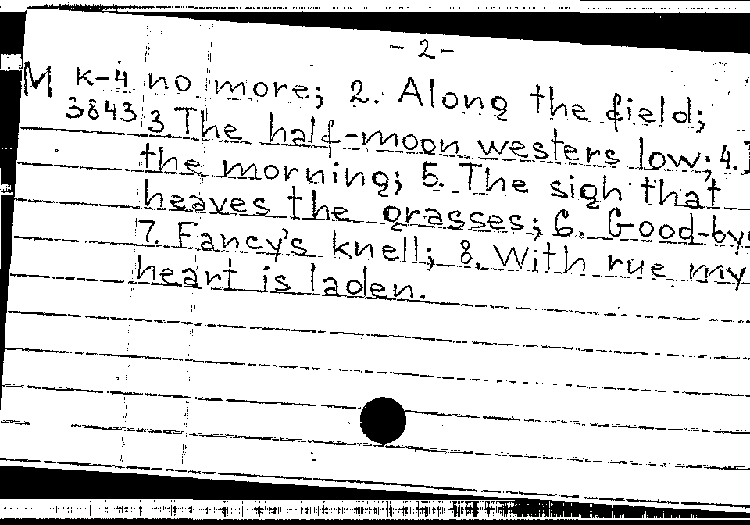 - 2 -
M K-4 no more; 2. Along the field;
3843 3 The half-moon westers low; 4. I
the morning; 5. The sigh that
heaves the grasses; 6. Good-bye
7. Fancy's knell; 8. With rue my
heart is laden.